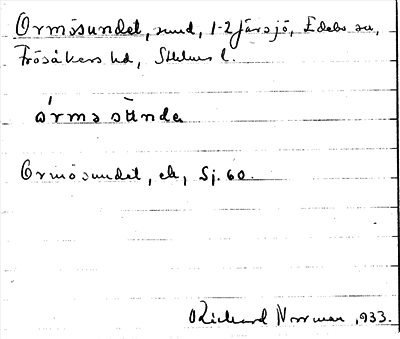 Ormösundet, sund, 1-2 Järsjö, Edebo sn,
Frösåkers hd, Sthlms l.
Ormösundet, ek, Sj. 60.
Richard Norrman, 1933.